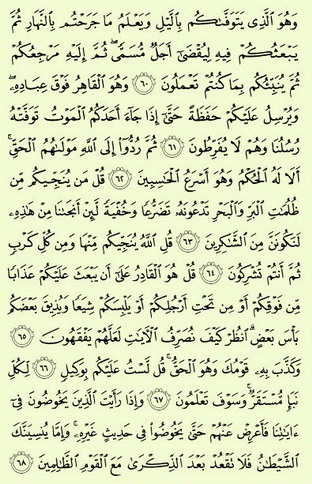 وَهُوَ ٱلَّذِى يَتَوَفَّىٰكُم بِٱلَّيْلِ وَيَعْلَمُ مَا جَرَحْتُم بِٱلنَّهَارِ ثُمَّ
يَبْعَثُكُمْ فِيهِ لِيُقْضَىٰٓ أَجَلٌ مُّسَمًّى ۖ ثُمَّ إِلَيْهِ مَرْجِعُكُمْ
ثُمَّ يُنَبِّئُكُم بِمَا كُنتُمْ تَعْمَلُونَ ٦٠ وَهُوَ ٱلْقَاهِرُ فَوْقَ عِبَادِهِۦ ۖ
وَيُرْسِلُ عَلَيْكُمْ حَفَظَةً حَتَّىٰٓ إِذَا جَآءَ أَحَدَكُمُ ٱلْمَوْتُ تَوَفَّتْهُ
رُسُلُنَا وَهُمْ لَا يُفَرِّطُونَ ٦١ ثُمَّ رُدُّوٓا۟ إِلَى ٱللَّهِ مَوْلَىٰهُمُ ٱلْحَقِّ ۚ
أَلَا لَهُ ٱلْحُكْمُ وَهُوَ أَسْرَعُ ٱلْحَٰسِبِينَ ٦٢ قُلْ مَن يُنَجِّيكُم مِّن
ظُلُمَٰتِ ٱلْبَرِّ وَٱلْبَحْرِ تَدْعُونَهُۥ تَضَرُّعًا وَخُفْيَةً لَّئِنْ أَنجَىٰنَا مِنْ هَٰذِهِۦ
لَنَكُونَنَّ مِنَ ٱلشَّٰكِرِينَ ٦٣ قُلِ ٱللَّهُ يُنَجِّيكُم مِّنْهَا وَمِن كُلِّ كَرْبٍ
ثُمَّ أَنتُمْ تُشْرِكُونَ ٦٤ قُلْ هُوَ ٱلْقَادِرُ عَلَىٰٓ أَن يَبْعَثَ عَلَيْكُمْ عَذَابًا
مِّن فَوْقِكُمْ أَوْ مِن تَحْتِ أَرْجُلِكُمْ أَوْ يَلْبِسَكُمْ شِيَعًا وَيُذِيقَ بَعْضَكُم
بَأْسَ بَعْضٍ ۗ ٱنظُرْ كَيْفَ نُصَرِّفُ ٱلْءَايَٰتِ لَعَلَّهُمْ يَفْقَهُونَ ٦٥
وَكَذَّبَ بِهِۦ قَوْمُكَ وَهُوَ ٱلْحَقُّ ۚ قُل لَّسْتُ عَلَيْكُم بِوَكِيلٍ ٦٦ لِّكُلِّ
نَبَإٍ مُّسْتَقَرٌّ ۚ وَسَوْفَ تَعْلَمُونَ ٦٧ وَإِذَا رَأَيْتَ ٱلَّذِينَ يَخُوضُونَ فِىٓ
ءَايَٰتِنَا فَأَعْرِضْ عَنْهُمْ حَتَّىٰ يَخُوضُوا۟ فِى حَدِيثٍ غَيْرِهِۦ ۚ وَإِمَّا يُنسِيَنَّكَ
ٱلشَّيْطَٰنُ فَلَا تَقْعُدْ بَعْدَ ٱلذِّكْرَىٰ مَعَ ٱلْقَوْمِ ٱلظَّٰلِمِينَ ٦٨